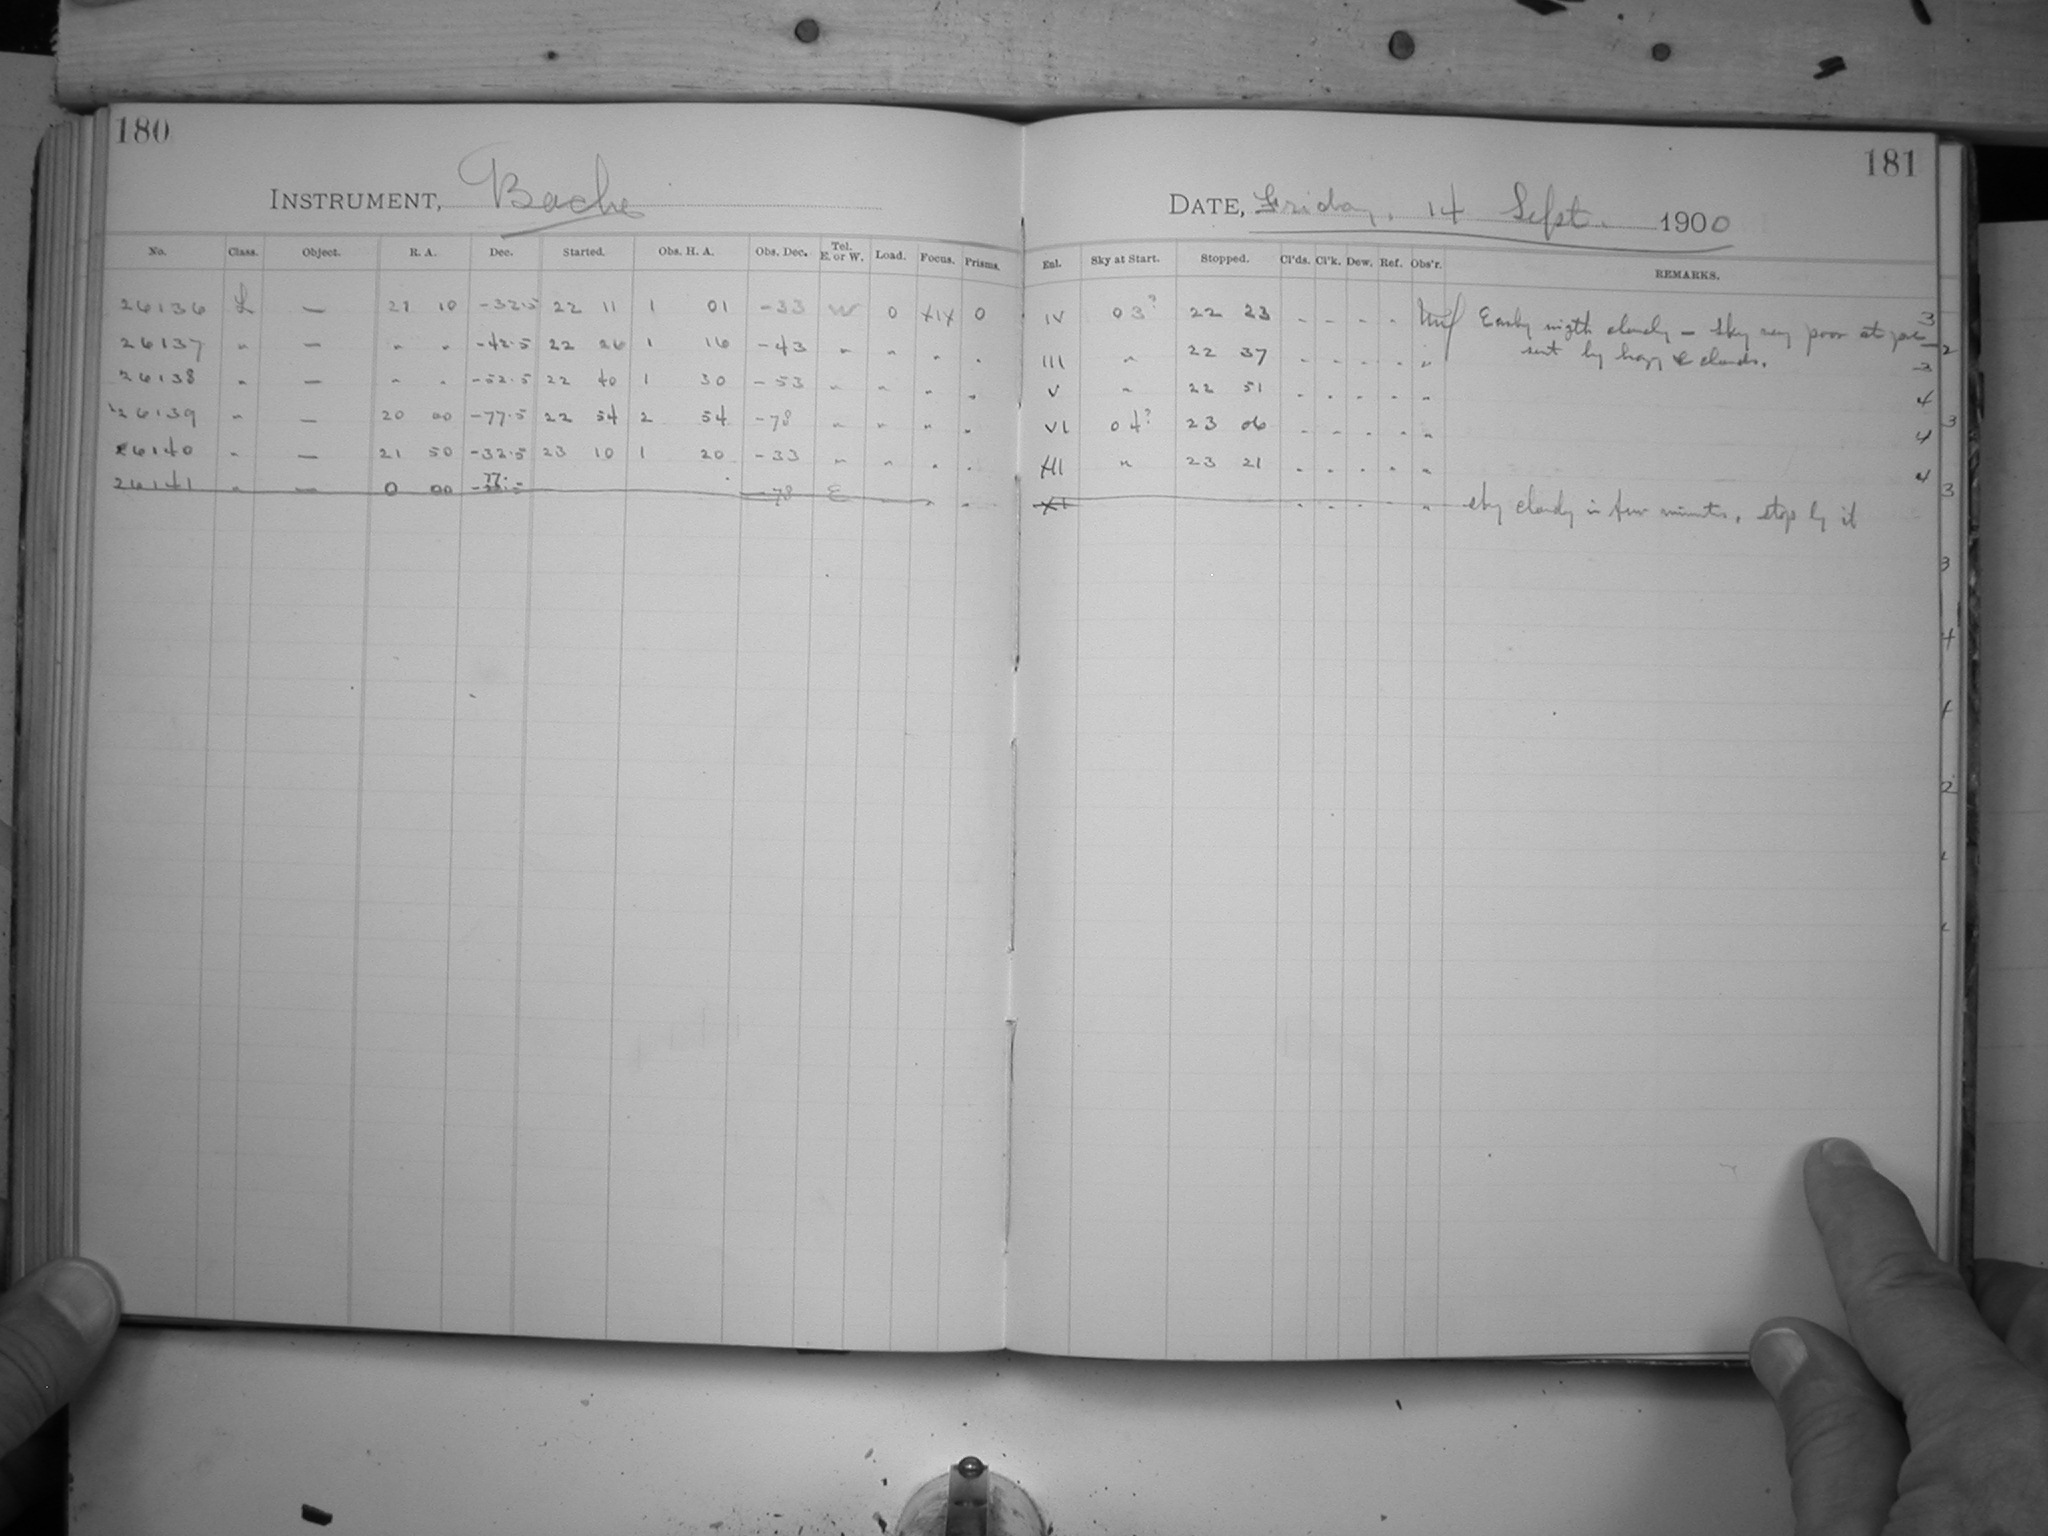 180
INSTRUMENT, Bache
No. Class. Object. R. A. Dec. Started. Obs. H. A. Obs. Dec. Tel. E. or W. Load. Focus. Prisms.
26136 L — 21 10 -32.5 22 11 1 01 -33 W 0 XIX 0
26137 " — " " -42.5 22 26 1 16 -43 " " " "
26138 " — " " -52.5 22 40 1 30 -53 " " " "
26139 " — 20 00 -77.5 22 54 2 54 -78 " " " "
26140 " — 21 50 -32.5 23 10 1 20 -33 " " " "
26141 " — 0 00 -77.5 -78 E " " "
181
DATE, Friday, 14 Sept. 1900
Enl. Sky at Start. Stopped. Cl'ds. Cl'k. Dew. Ref. Obs'r. REMARKS.
IV 03? 22 23 - - - - Early nigth cloudy — Sky very poor at pre- 3
III " 22 37 - - - - " sent by hazy & clouds. 3
V " 22 51 - - - - " 4
VI 04? 23 06 - - - - " 4
III " 23 21 - - - - " 4
XI - - - - " sky cloudy in few minutes, stop by it
2
3
3
3
4
2